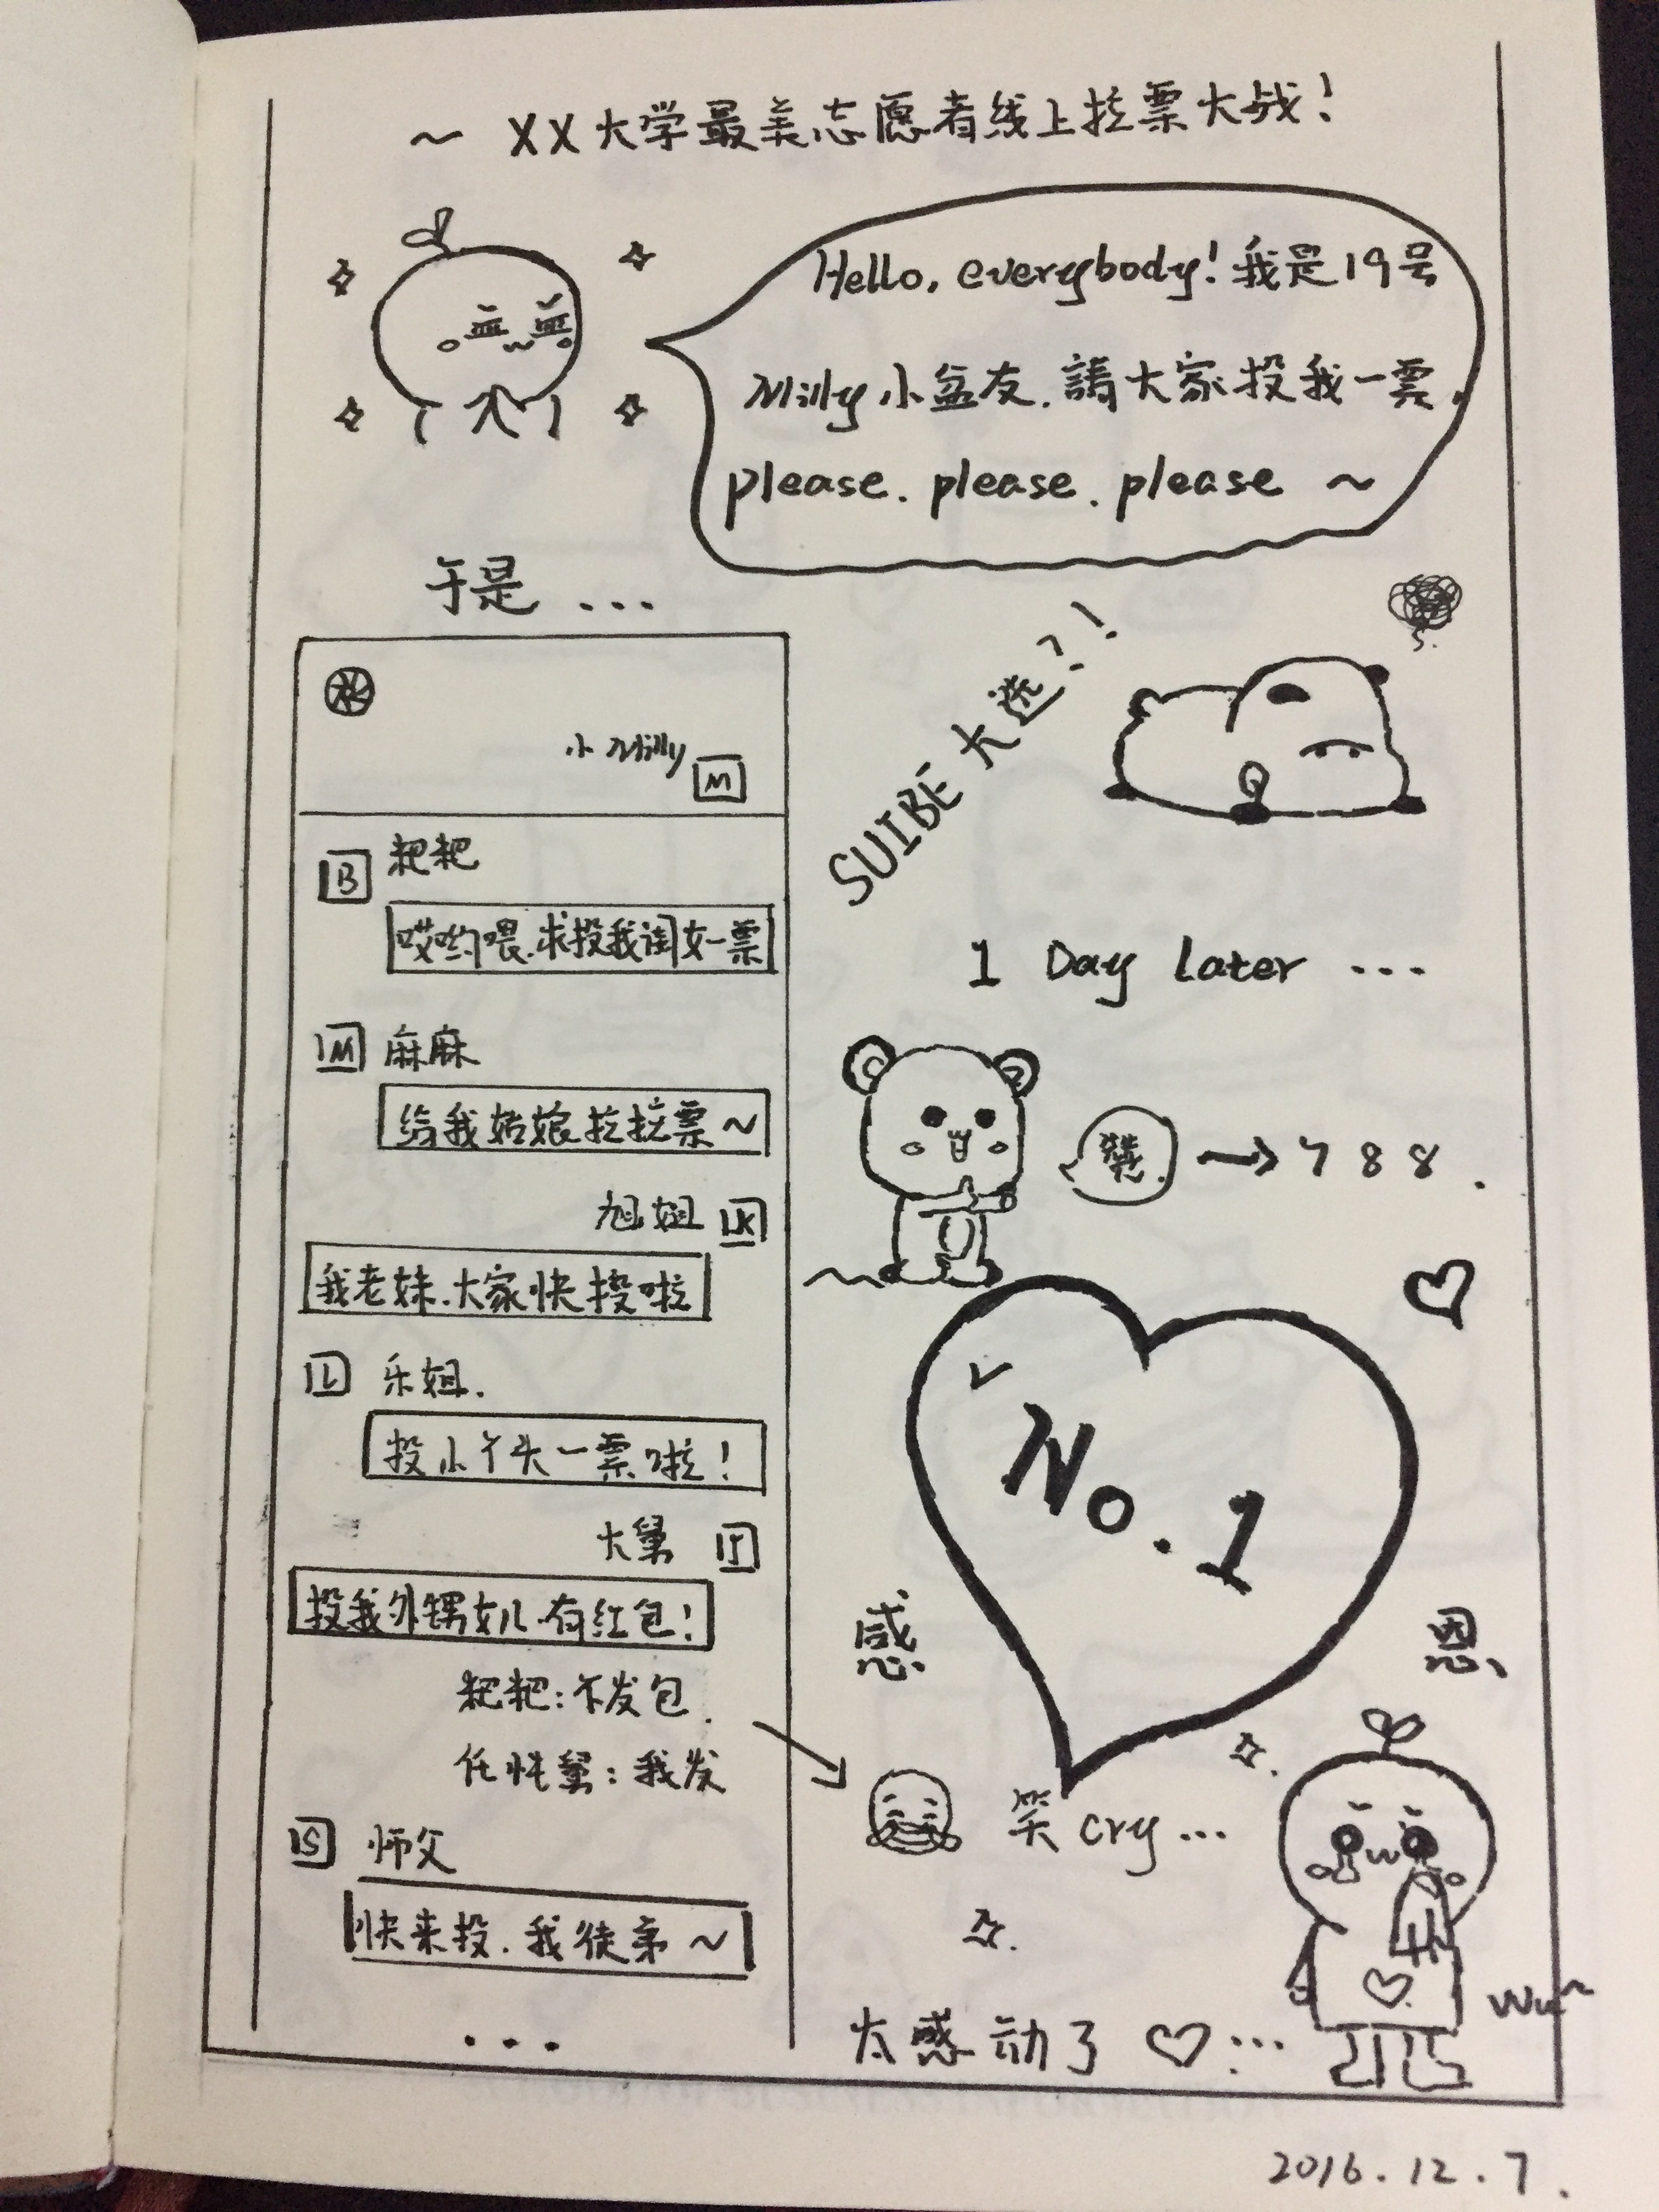 ~ XX大学最美志愿者线上拉票大战!
Hello, everybody! 我是19号
Milly小盆友.請大家投我一票.
please. please. please ~
于是...
小Milly
M
B 粑粑
哎哟喂.求投我闺女一票
M 麻麻
给我姑娘拉拉票~
旭姐 X
我老妹.大家快投啦
L 乐姐.
投小丫头一票啦!
大舅
投我外甥女儿.有红包!
粑粑:不发包.
任性舅:我发
S 师父
快来投.我徒弟~
...
SUIBE大选?!
1 Day Later ...
赞. → 788.
No.1
感 恩
笑cry...
太感动了 ♡...
Wu~
2016.12.7.